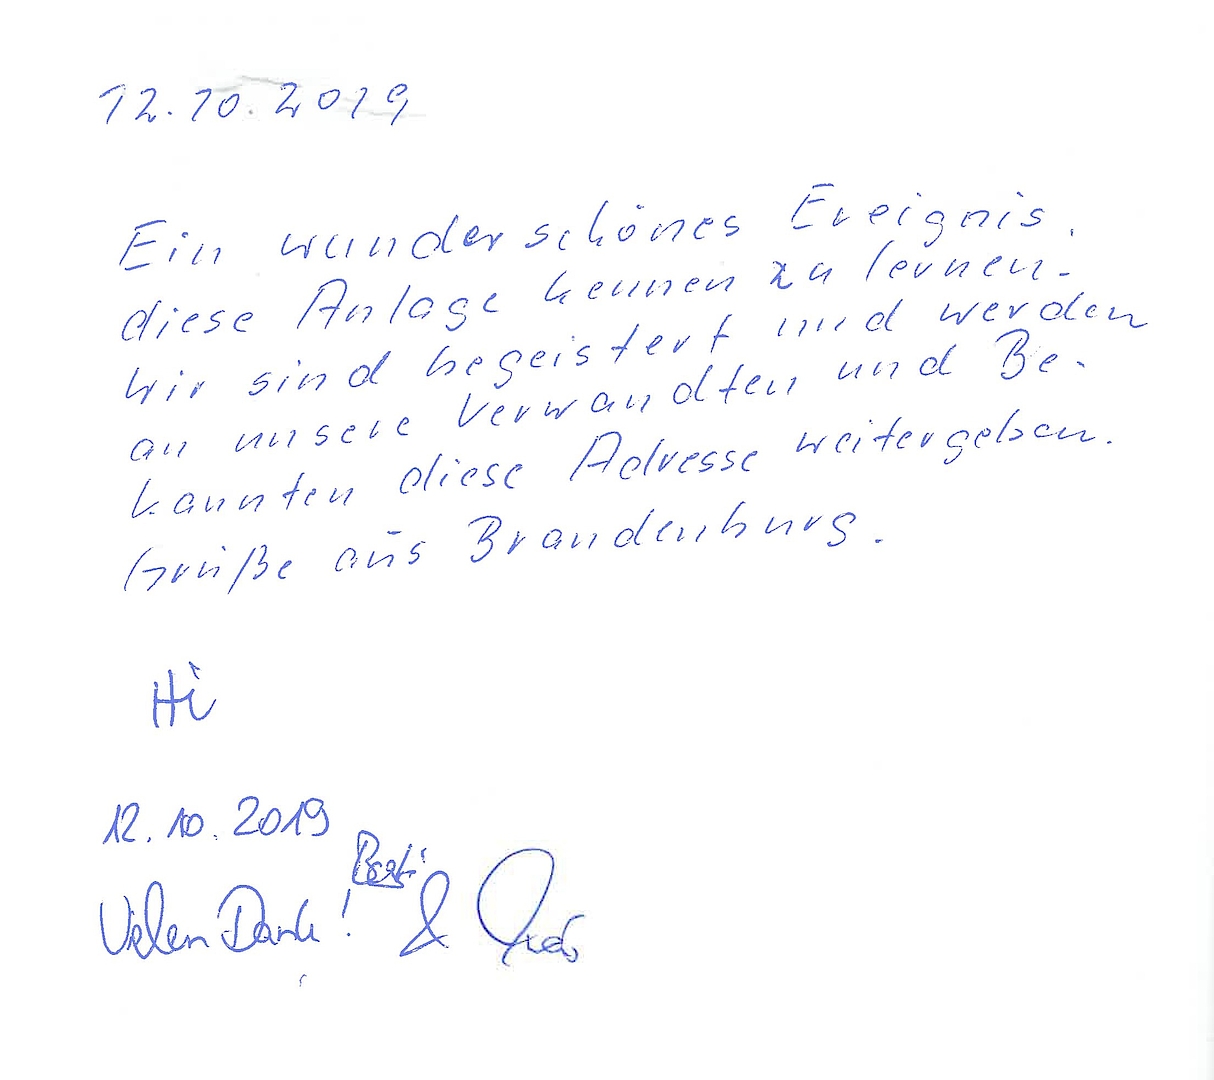 12.10.2019
Ein wunderschönes Ereignis,
diese Anlage kennen zu lernen.
Wir sind begeistert und werden
an unsere Verwandten und Be-
kannten diese Adresse weitergeben.
Grüße aus Brandenburg.
Hi
12.10.2019
Vielen Dank! &